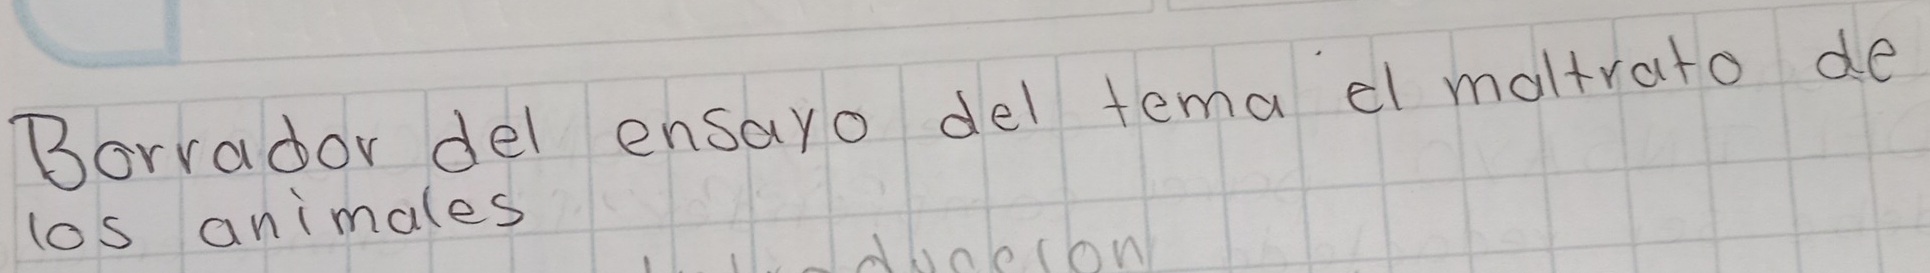 Borrador del ensayo del tema el maltrato de
los animales